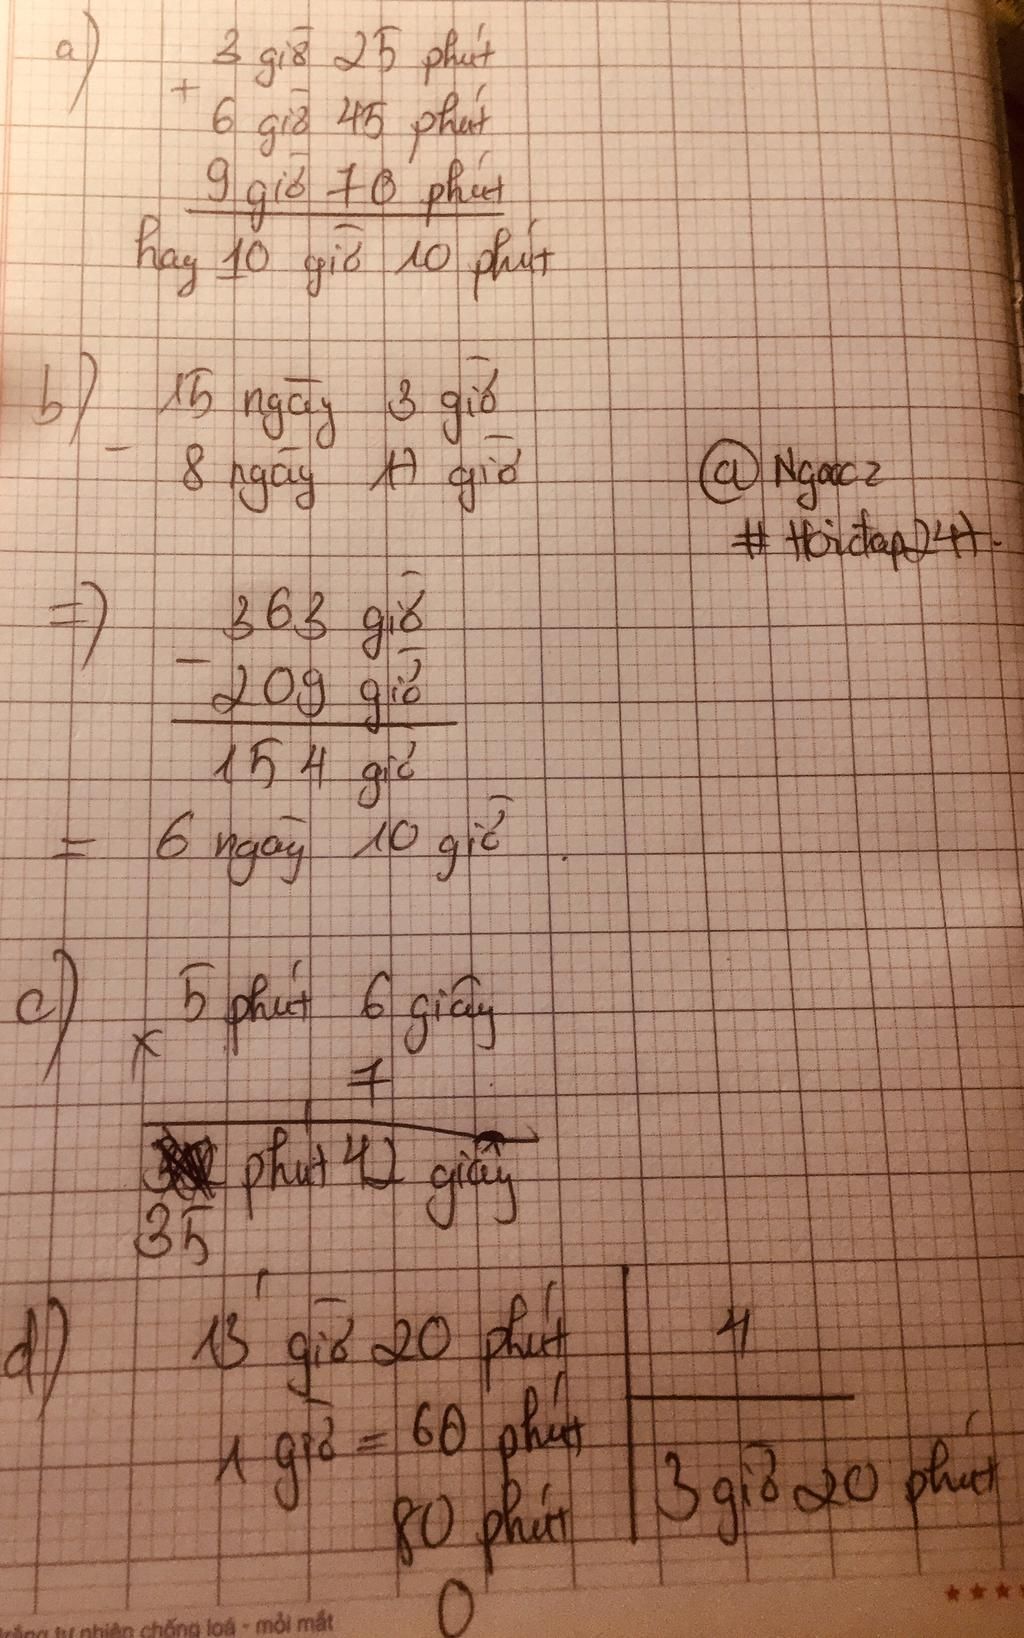 a) 3 giờ 25 phút
+
6 giờ 45 phút
9 giờ 70 phút
hay 10 giờ 10 phút
b) 15 ngày 3 giờ
-
8 ngày 17 giờ
@ Ngocz
# Hoidap247.
=) 363 giờ
-
209 giờ
154 giờ
= 6 ngày 10 giờ
c) 5 phút 6 giây
x
7
phút 42 giây
35
d) 13 giờ 20 phút 4
1 giờ = 60 phút
3 giờ 20 phút
80 phút
0
trắng tự nhiên chống loá - mỏi mắt